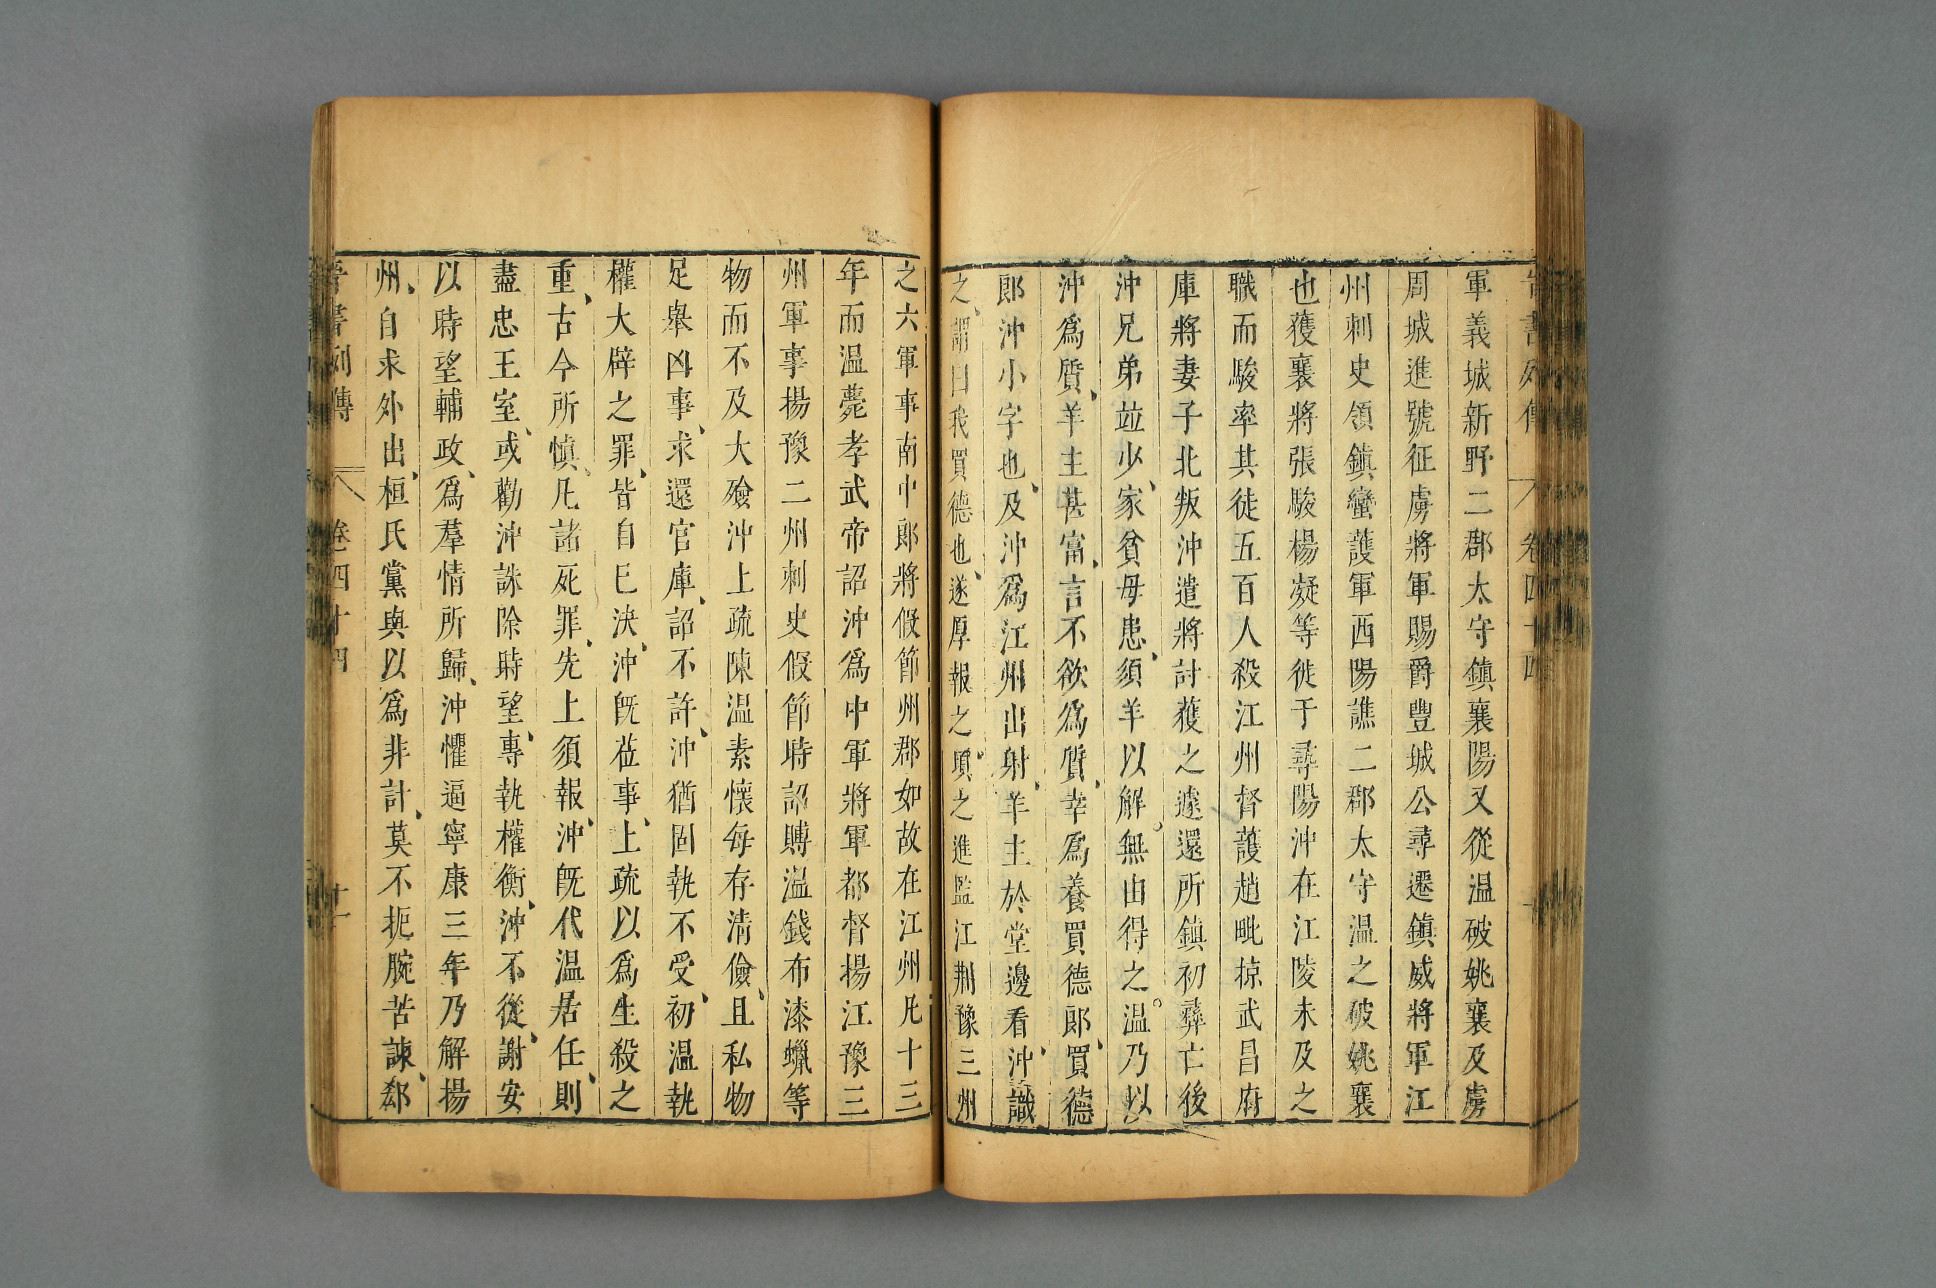 晉書列傳 卷四十四
軍義城新野二郡太守鎮襄陽又從温破姚襄及虜
周城進號征虜將軍賜爵豐城公尋遷鎮威將軍江
州刺史領鎮蠻護軍西陽譙二郡太守温之破姚襄
也獲襄將張駿楊凝等徙于尋陽沖在江陵未及之
職而駿率其徒五百人殺江州督護趙毗掠武昌府
庫將妻子北叛沖遣將討獲之遽還所鎮初彞亡後
沖兄弟竝少、家貧母患、須羊以解無由得之。温乃以
沖爲質、羊主甚富、言不欲爲質、幸爲養買德郎、買德
郎沖小字也、及沖爲江州出射、羊主於堂邊看沖、識
之、謂曰我買德也、遂厚報之、頃之進監江荆豫三州
之六軍事南中郎將假節州郡如故在江州凡十三
年而温薨孝武帝詔沖爲中軍將軍都督揚江豫三
州軍事揚豫二州刺史假節時詔賻温錢布漆蠟等
物而不及大殮沖上疏陳温素懷每存清儉、且私物
足舉凶事、求還官庫、詔不許、沖猶固執不受、初温執
權大辟之罪、皆自已決、沖旣莅事、上疏以爲生殺之
重、古今所慎。凡諸死罪、先上須報、沖旣代温居任、則
盡忠王室、或勸沖誅除時望、專執權衡、沖不從、謝安
以時望輔政、爲羣情所歸、沖懼逼寧康三年乃解揚
州、自求外出、桓氏黨與以爲非計、莫不扼腕苦諫、郄
晉書列傳 卷四十四 十一